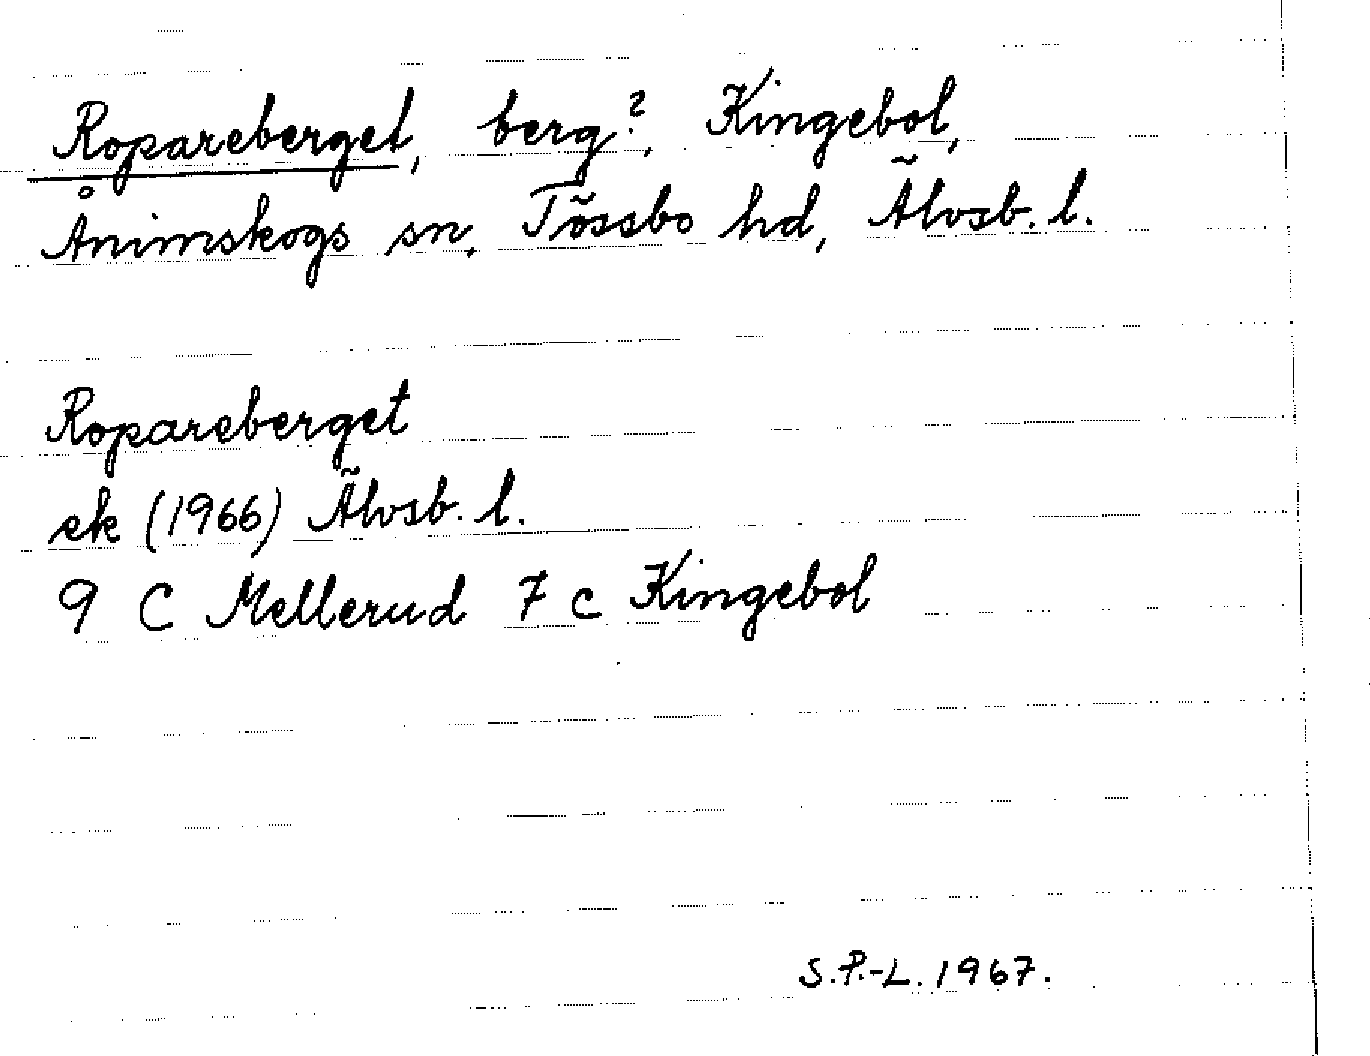 Ropareberget, berg?, Kingebol,
Ånimskogs sn, Tössbo hd, Älvsb. l.
Ropareberget
ek (1966) Älvsb. l.
9 C Mellerud 7 c Kingebol
S.P.-L. 1967.